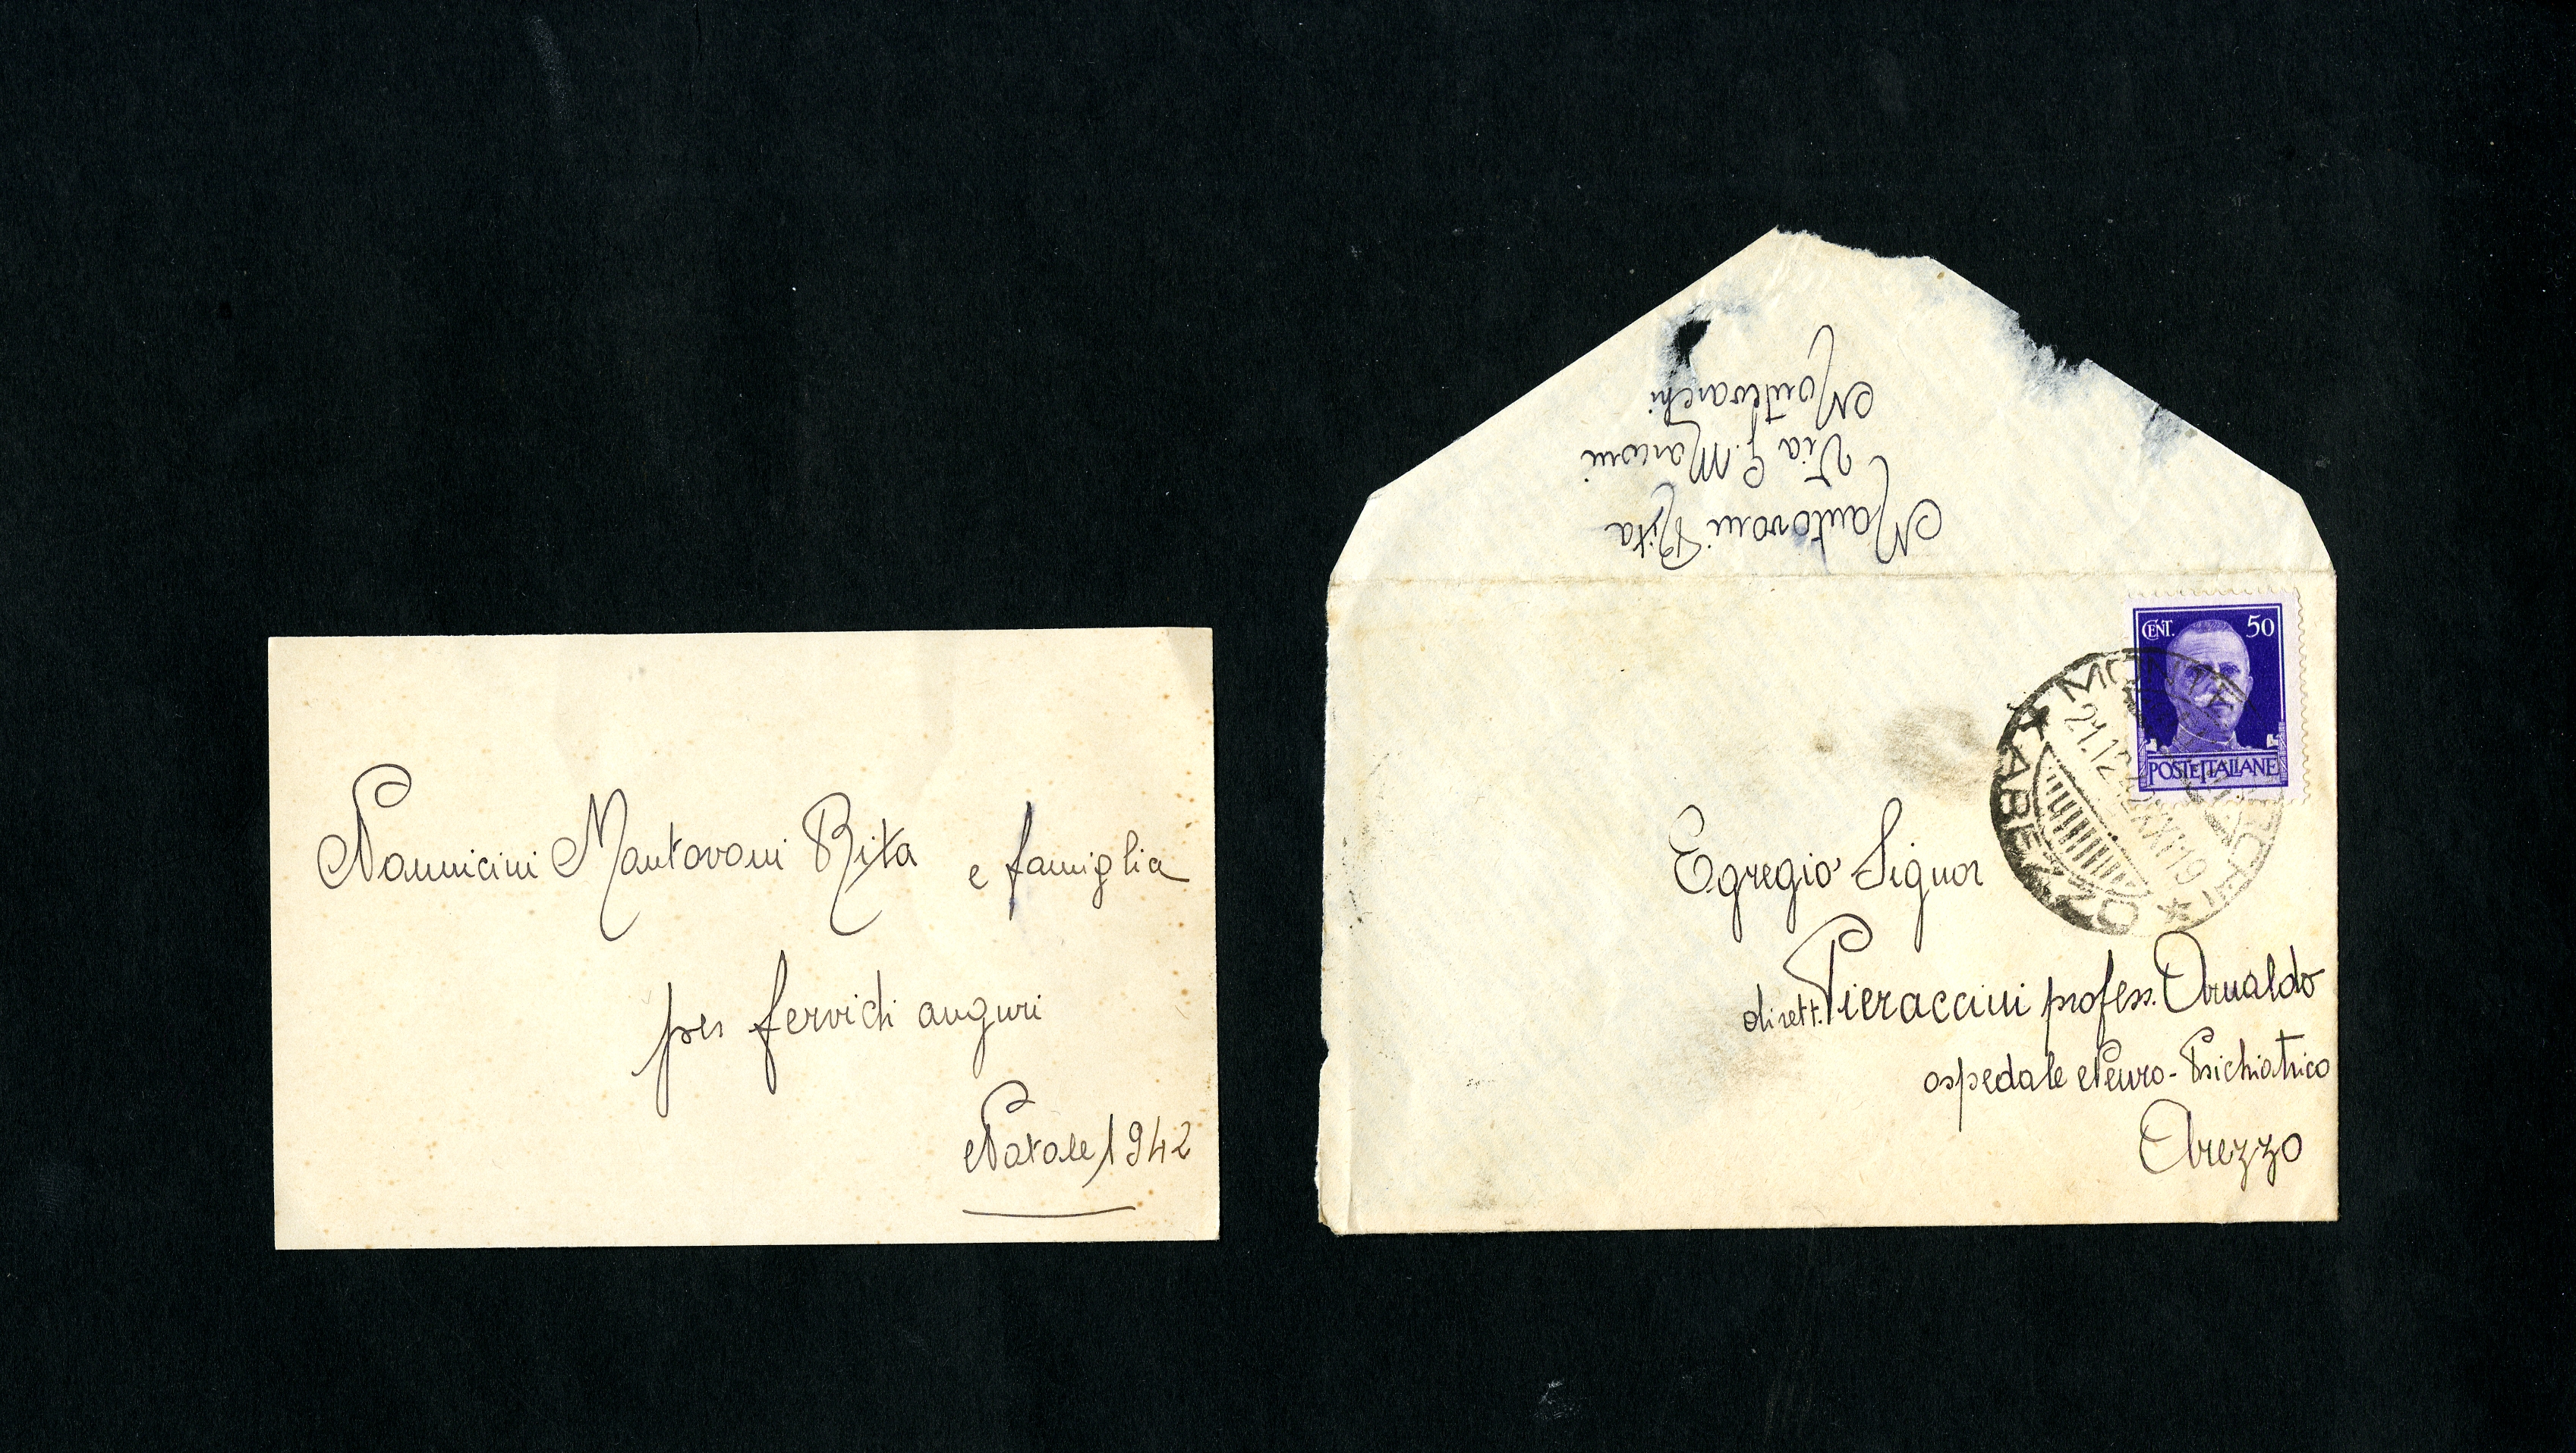 Nannicini Mantovani Rita e famiglia
per fervidi auguri
Natale 1942
Mantovani Rita
Via G. Marconi
Montevarchi
CENT. 50
POSTE ITALIANE
MONTEVARCHI
21.12.42 XXI 19
* AREZZO *
Egregio Signor
dirett. Pieraccini profess. Arnaldo
ospedale Neuro-Psichiatrico
Arezzo